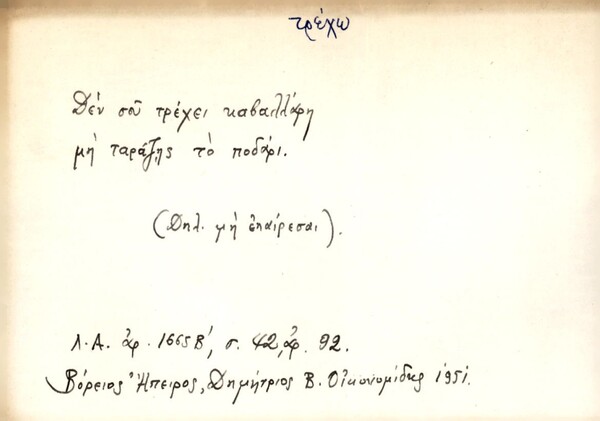 τρέχω
Δέν σοῦ τρέχει καβαλλάρη
μή ταράζῃς τὸ ποδάρι.
(Δηλ. μή ἐπαίρεσαι).
Λ.Α. ἀρ. 1665Β', σ. 42, ἀρ. 92.
Βόρειος Ἤπειρος, Δημήτριος Β. Οἰκονομίδης 1951.